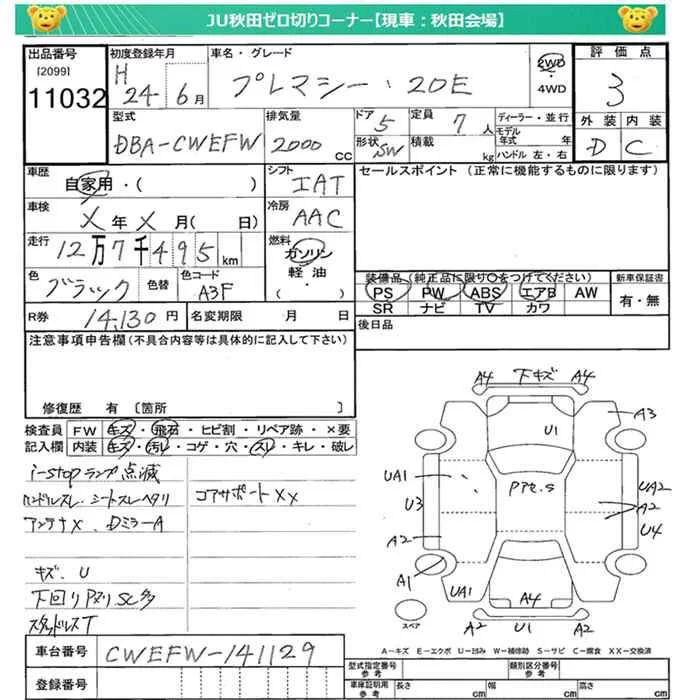 JU秋田ゼロ切りコーナー【現車：秋田会場】
出品番号
[2099]
11032
初度登録年月
H 24 6月
車名・グレード
プレマシー・20E
2WD
・
4WD
評価点
3
外装 内装
D C
型式
DBA-CWEFW
排気量
2000 cc
ドア 5
形状 SW
定員 7 人
積載 kg
ディーラー・並行
モデル年式 年
ハンドル 左・右
車歴
自家用・( )
シフト
IAT
セールスポイント(正常に機能するものに限ります)
車検
X年X月( 日)
冷房
AAC
走行
12万7千495km
燃料
ガソリン
軽油
( ・ )
色
ブラック
色替
色コード
A3F
装備品(純正品に限り○をつけてください)
PS PW ABS エアB AW
SR ナビ TV カワ
新車保証書
有・無
R券 14,130円
名変期限 月 日
後日品
注意事項申告欄(不具合内容等は具体的に記入して下さい)
修復歴 有 [箇所 ]
検査員記入欄
FW キズ・飛石・ヒビ割・リペア跡・×要
内装 キズ・汚レ・コゲ・穴・スレ・キレ・破レ
i-stopランプ点滅
ハンドルスレ・シートスレヘタリ
コアサポートXX
アンテナX.DミラーA
キズ.U
下回りPヌリSC多
スタッドレスT
A4 下キズ A4
U1
A3
UA1
Pアセ.S
U3
UA2
A2
U4
A2
A1
UA1
A4
スペア
A2 U1 A2
A-キズ E-エクボ U-凹み W-補修跡 S-サビ C-腐食 XX-交換済
車台番号
CWEFW-141129
登録番号
型式指定番号 参考
類別区分番号 参考
車庫証明用 参考
長さ cm
幅 cm
高さ cm